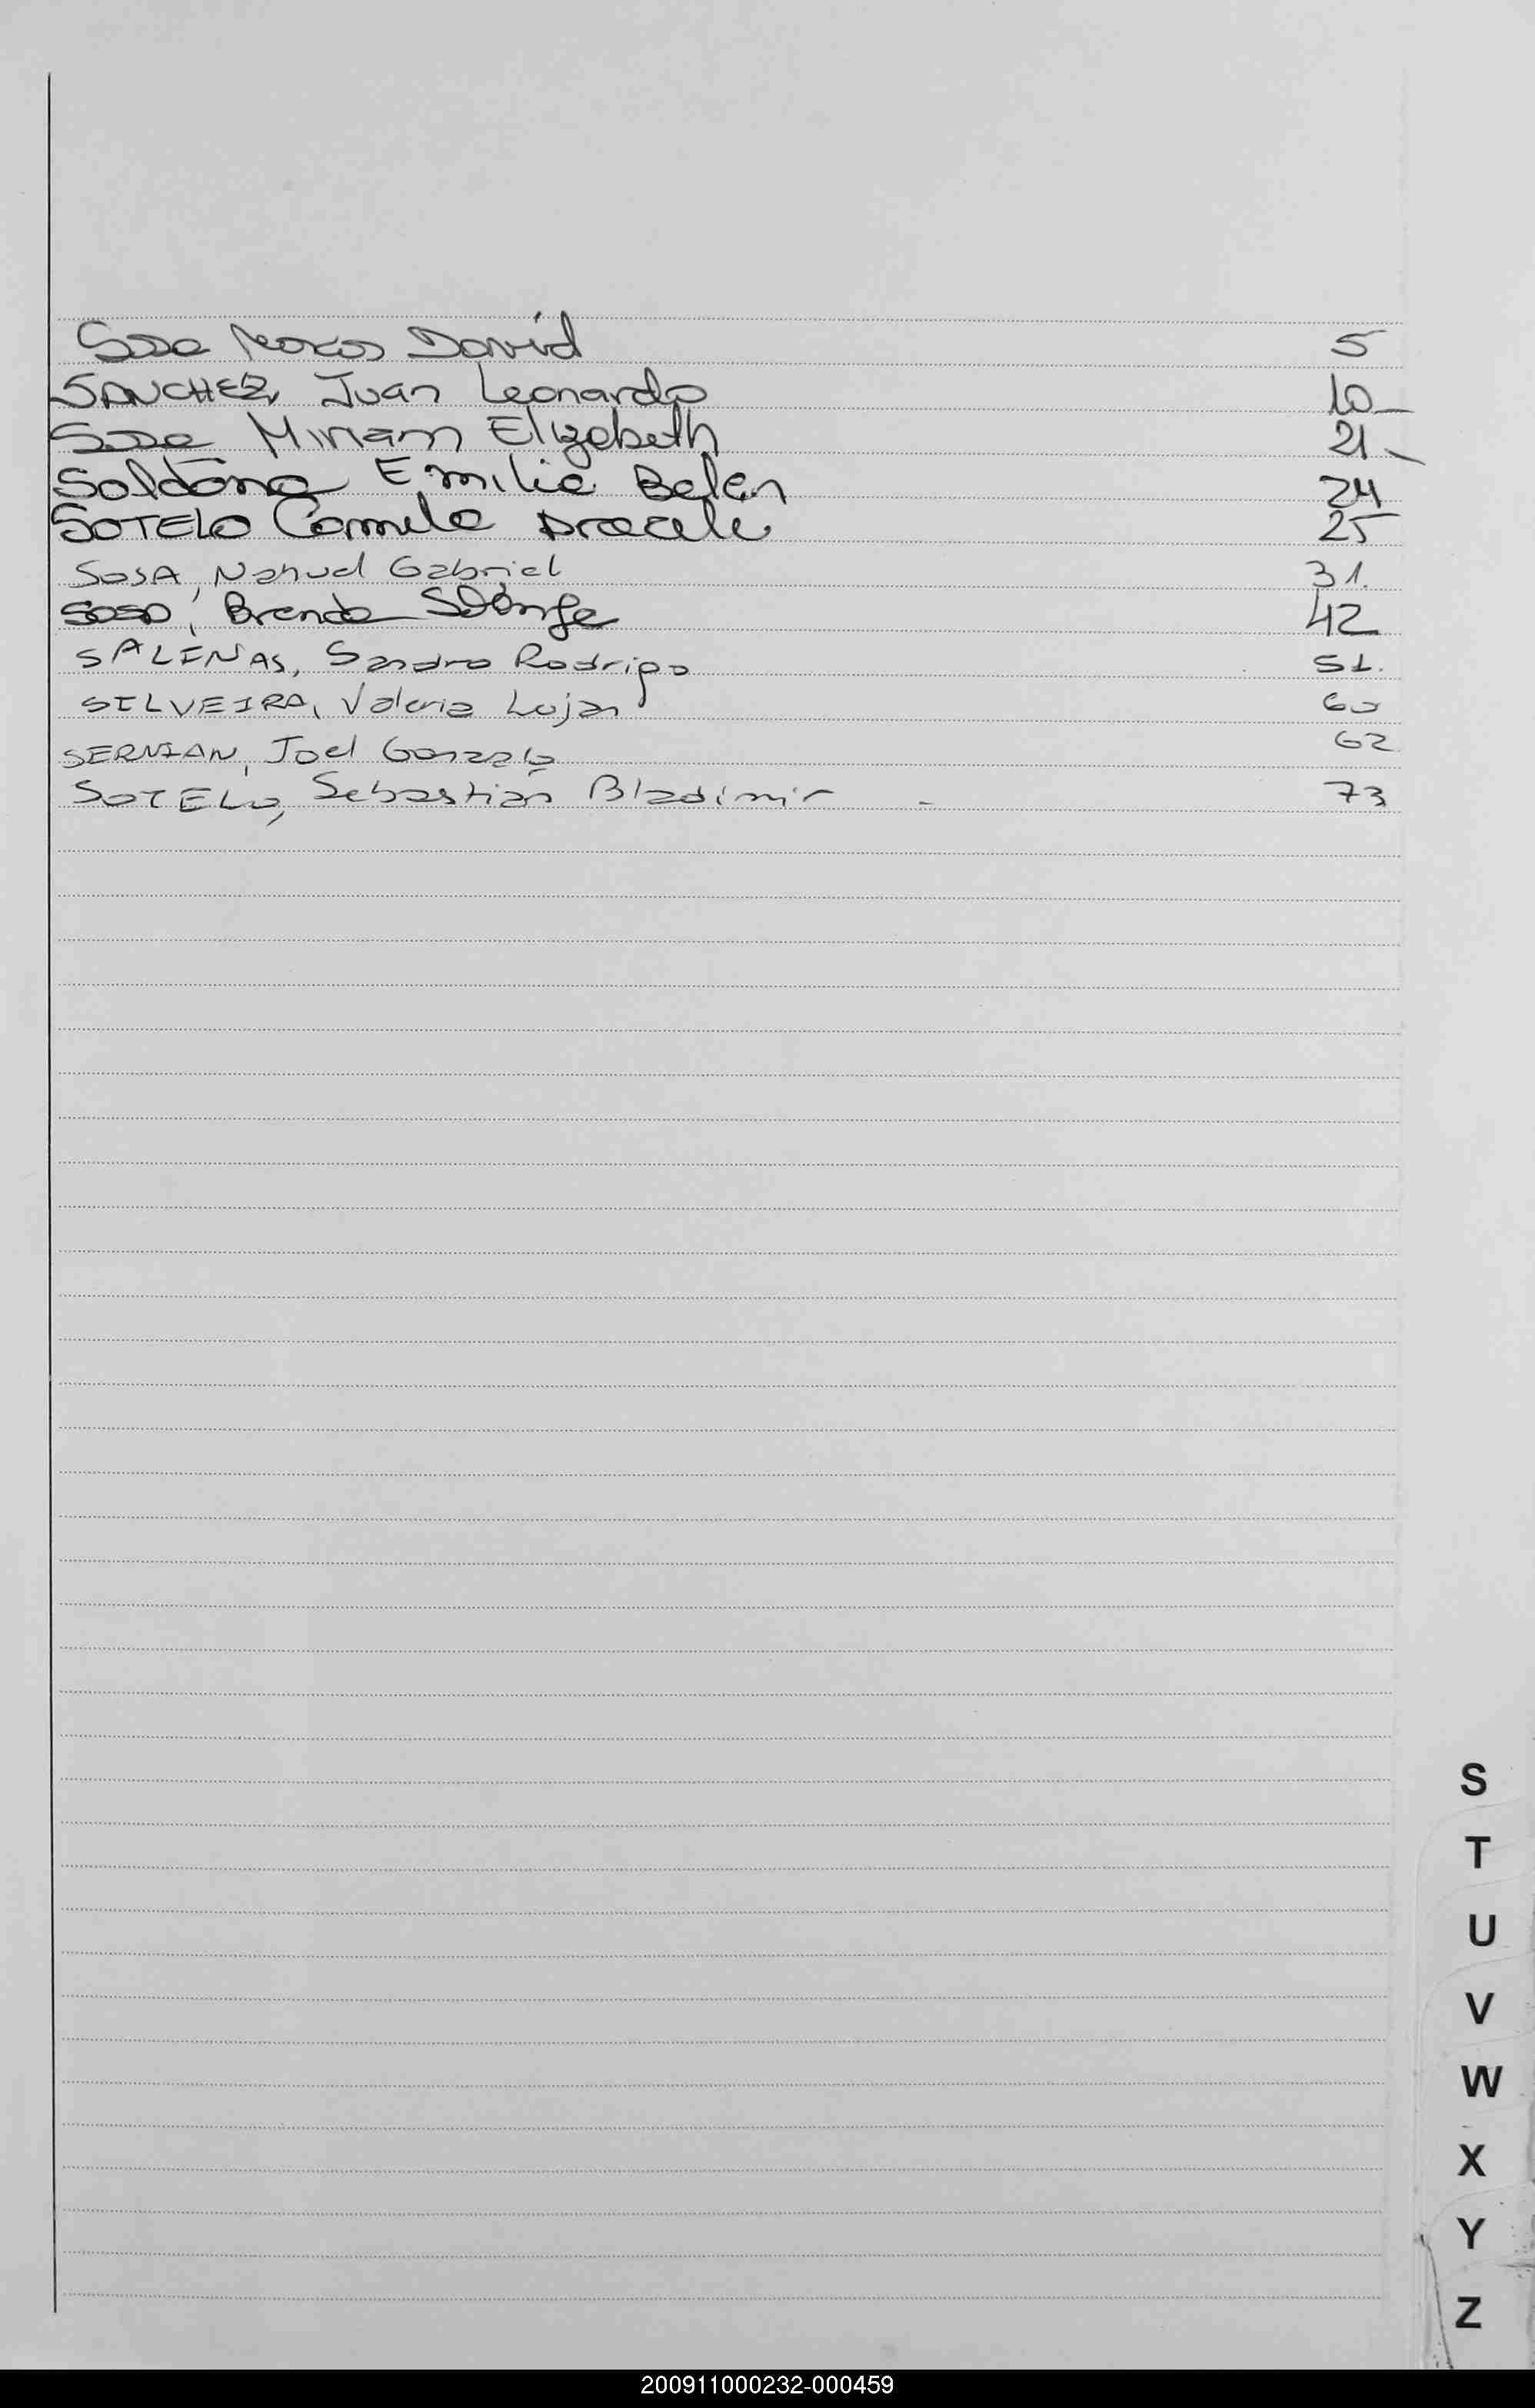 Sosa Marcos David 5
SANCHEZ, Juan Leonardo 10
Sosa Miriam Elizabeth 21
Saldana Emilia Belen 24
SOTELO Camila Araceli 25
SOSA, Nahuel Gabriel 31.
SOSA, Brenda Solange 42
SALINAS, Sandro Rodrigo 51.
SILVEIRA, Valeria Lujan 60
SERVIAN, Joel Gonzalo 62
SOTELO, Sebastián Bladimir - 73
S
T
U
V
W
X
Y
Z
200911000232-000459